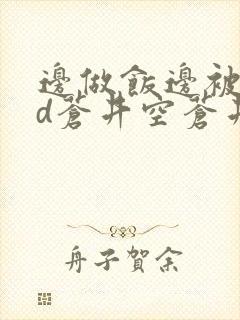 邊做飯邊被
d蒼井空蒼井
舟子賀余